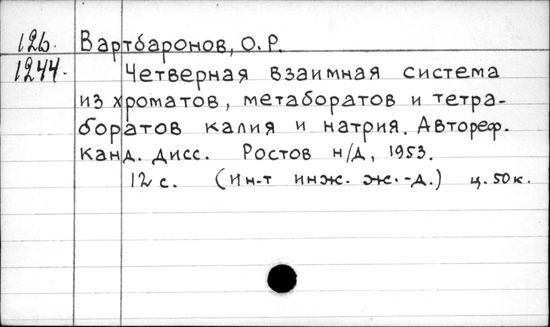 126. Вартбаронов, О.Р.
1244. Четверная взаимная система
из хроматов, метаборатов и тетра-
боратов калия и натрия. Автореф.
канд. дисс. Ростов н/Д, 1953.
12 с. (Ин-т инж. ж.-д.) ц. 50 к.